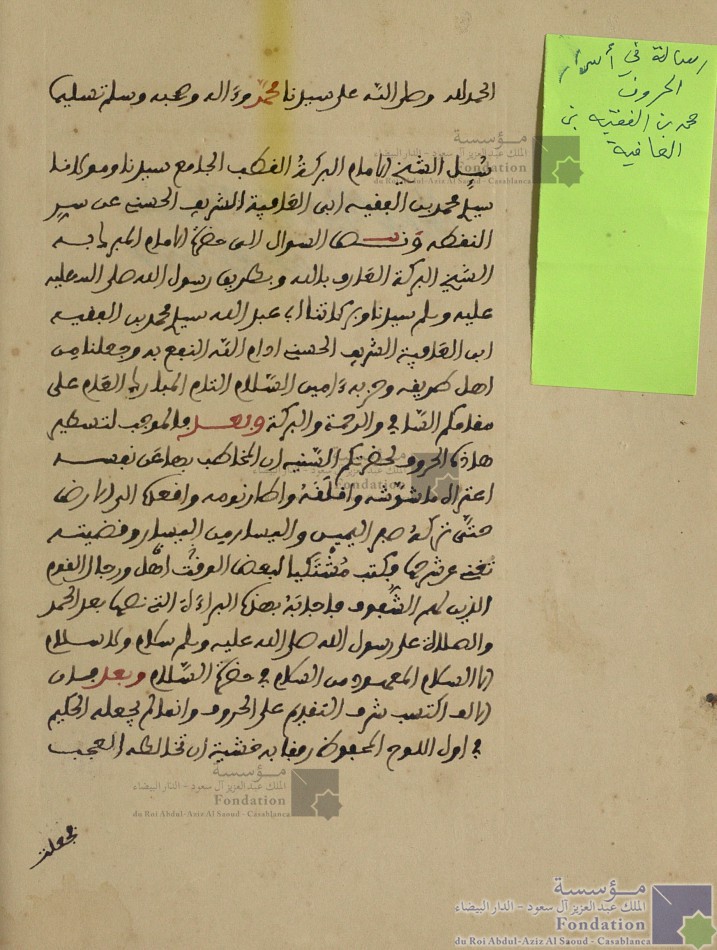 الحمد لله وصلى الله على سيدنا محمد وءاله وصحبه وسلم تسليما
سئل الشيخ الامام البركة القطب الجامع سيدنا ومولانا
سيد محمد بن الفقيه ابى العافية الشريف الحسني عن سر
النقطة ونص السوال الى حضرة الامام
الشيخ البركة العارف بالله وبطريق رسول الله صلى الله عليه
عليه وسلم سيدنا وبركاتنا ابى عبد الله سيد محمد بن الفقيه
ابى العافية الشريف الحسني ادام الله النفع به وجعلنا من
اهل طريقه وحزبه ءامين السلام التام المبارك العام على
مقامكم السامي والرحمة والبركة وبعد فالموجب لتسطير
هاذه الحروف لحضرتكم السنية ان المخاطب بها عن نفسه
اعتراه ما شوشه واقلقه واطار نومه وافعده
حتى ترك صبر اليمين واليسار من اليسار وقضيته
فكتب مشتكيا لبعض الوقت اهل ورجال القوم
الذين لهم الشفوف فاجابه بهذه البراءة التي نصها بعد الحمد
والصلاة على رسول الله صلى الله عليه وسلم سلام ولا سلام
الا السلام المعهود من السلام في حضرة السلام وبعد فان
الالف اكتسب شرف التقديم على الحروف وانما لم يجعله الحكيم
في اول اللوح المحفوظ رفقا به خشية ان تخالطه العجب
فجعلت
رسالة في أسرار
الحروف
محمد بن الفقيه بن
العافية
مؤسسة
الملك عبد العزيز آل سعود - الدار البيضاء
Fondation
du Roi Abdul-Aziz Al Saoud - Casablanca